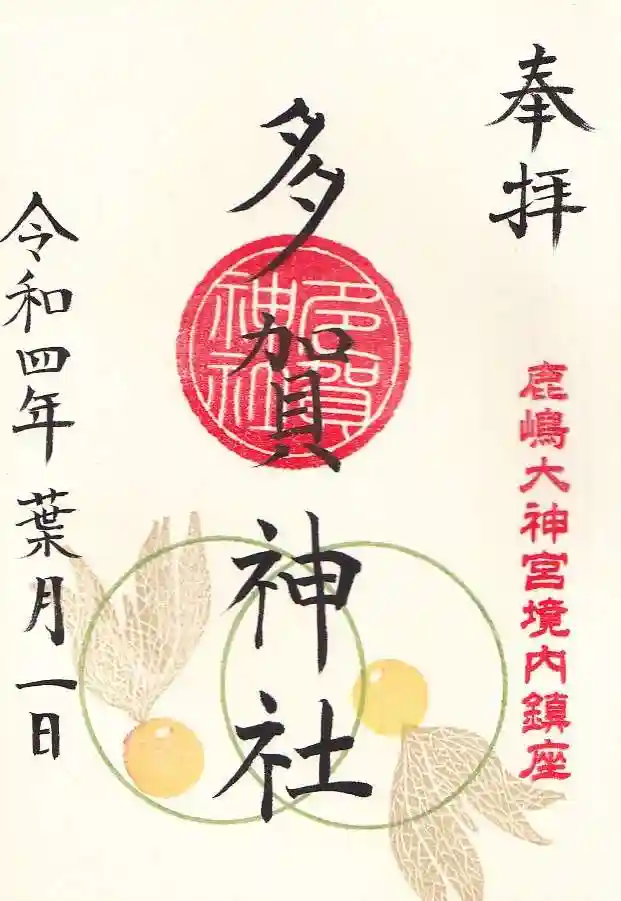 奉拝
鹿嶋大神宮境内鎮座
多賀神社
多賀神社
令和四年葉月一日